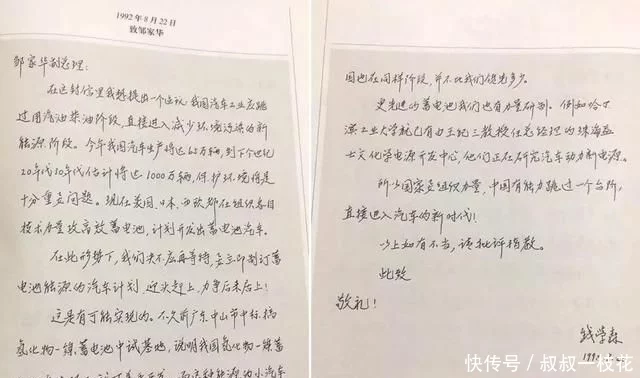 1992年8月22日
致邹家华
邹家华副总理:
在这封信里我想提出一个建议:我国汽车工业应跳
过用汽油柴油阶段,直接进入减少环境污染的新
能源阶段。今年我国汽车生产将达65万辆,到下个世纪
20年代30年代估计将达1000万辆,保护环境将是
十分重要问题。现在美国、日本、西欧都在组织各自
技术力量攻高效蓄电池,计划开发出蓄电池汽车。
在此形势下,我们决不应再等待,要立即制订蓄
电池能源的汽车计划,迎头赶上,力争后来居上!
这是有可能实现的。不久前广东中山市中标搞
氢化物-镍蓄电池中试基地,说明我国氢化物-镍蓄
国也在同样阶段,并不比我们领先多少。
更先进的蓄电池我们也有力量研制。例如哈尔
滨工业大学就已有由王纪三教授任总经理的珠海益
士文化学电源开发中心,他们正在研究汽车动力新电源。
所以国家要组织力量,中国有能力跳过一个台阶,
直接进入汽车的新时代!
以上如有不当,请批评指教。
此致
敬礼!
钱学森
快传号/叔叔一枝花